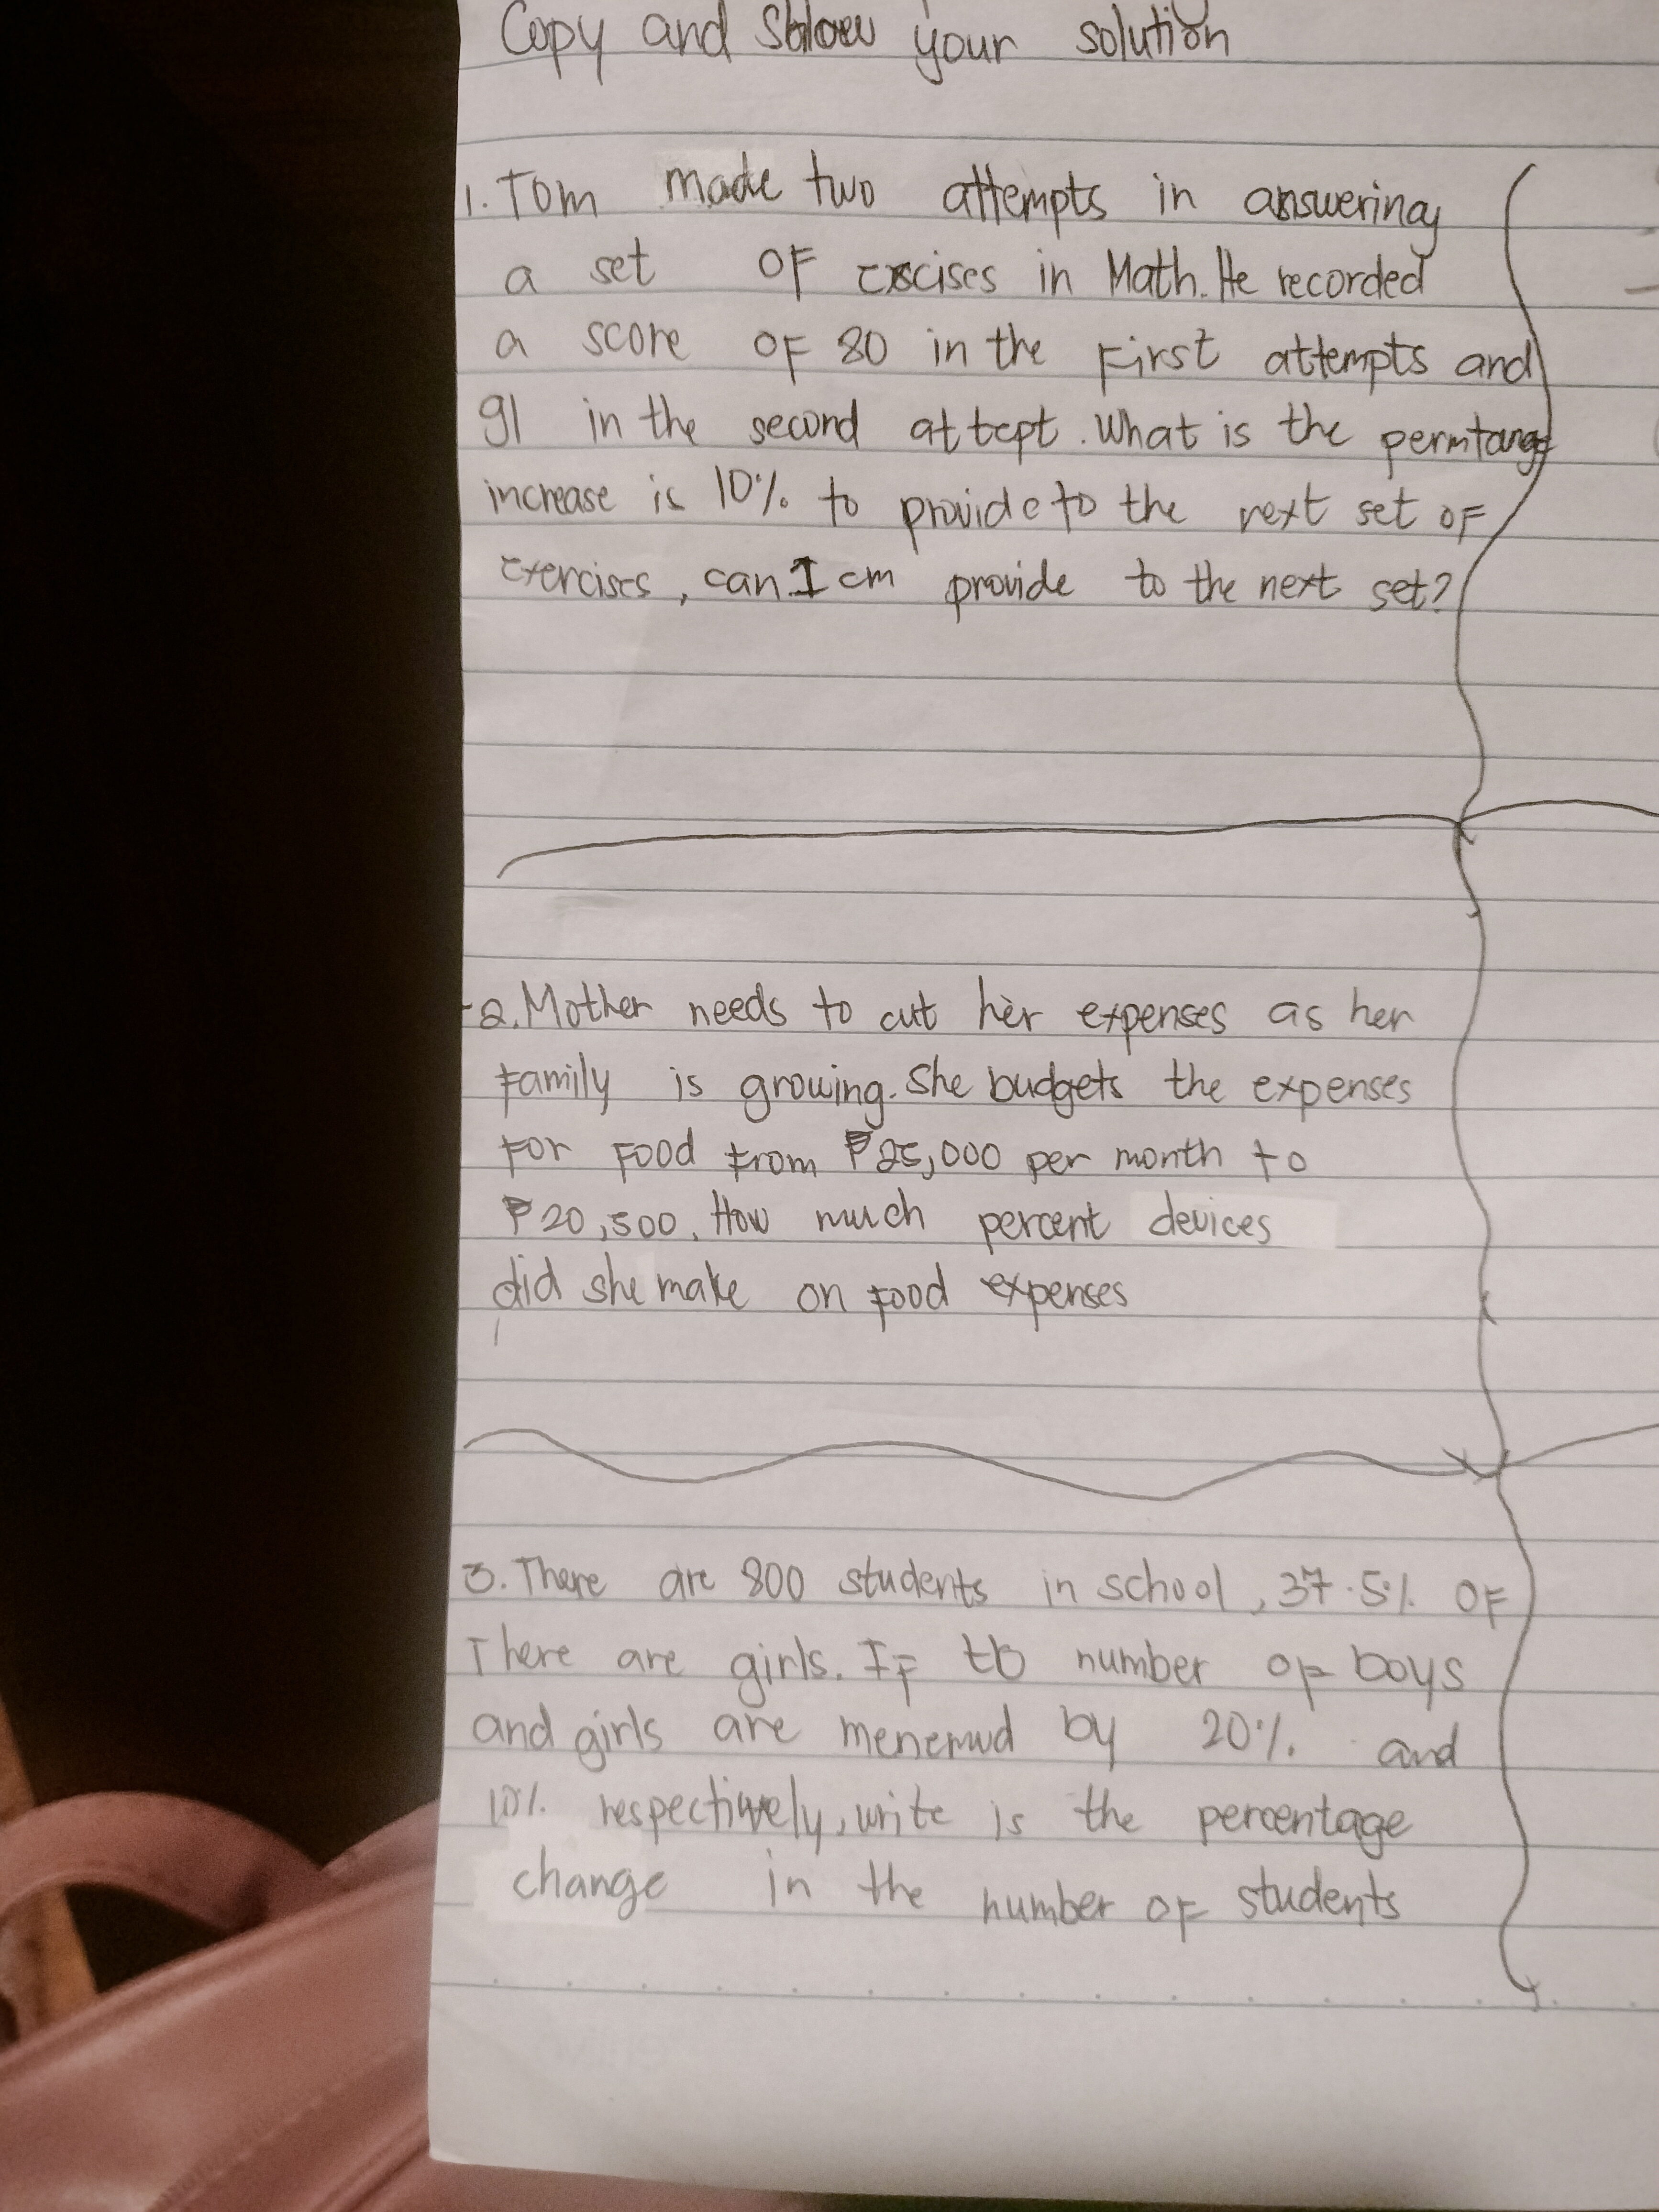 Copy and Sblow your solution
1. Tom made two attempts in answering
a set OF excises in Math. He recorded
a score OF 80 in the First attempts and
91 in the second attept. What is the permtange
increase is 10% to provide to the next set OF
Exercises, can I cm provide to the next set?
2. Mother needs to cut her expenses as her
Family is growing. She budgets the expenses
For Food From ₱25,000 per month to
₱20,500. How much percent devices
did she make on Food expenses
3. There are 800 students in school, 37.5% OF
There are girls. IF number OF boys
and girls are by 20% and
10% respectively, write is the percentage
change in the number OF students